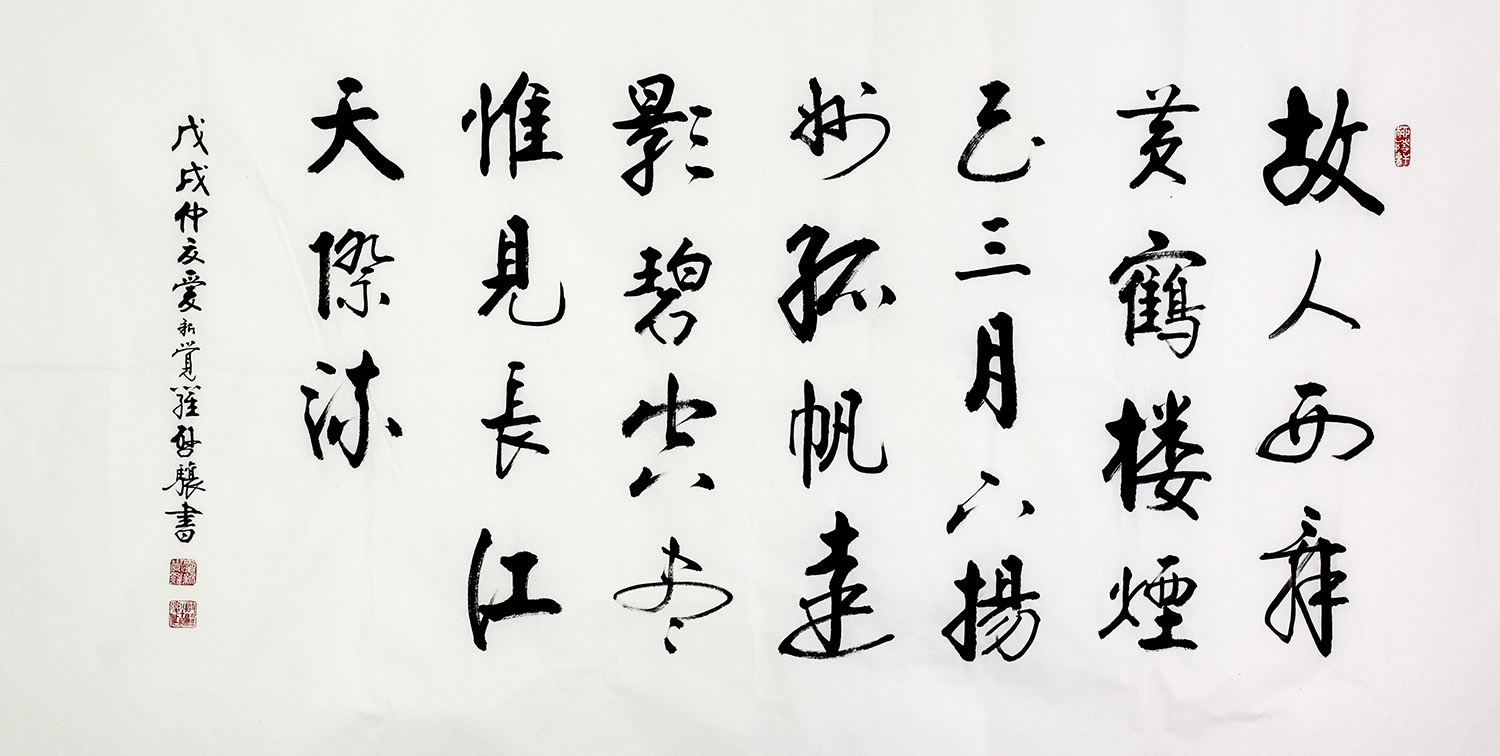 故人西辞
黄鶴楼煙
花三月下揚
州孤帆遠
影碧空尽
惟見長江
天際流
戊戌仲夏愛新覚羅啓驤書